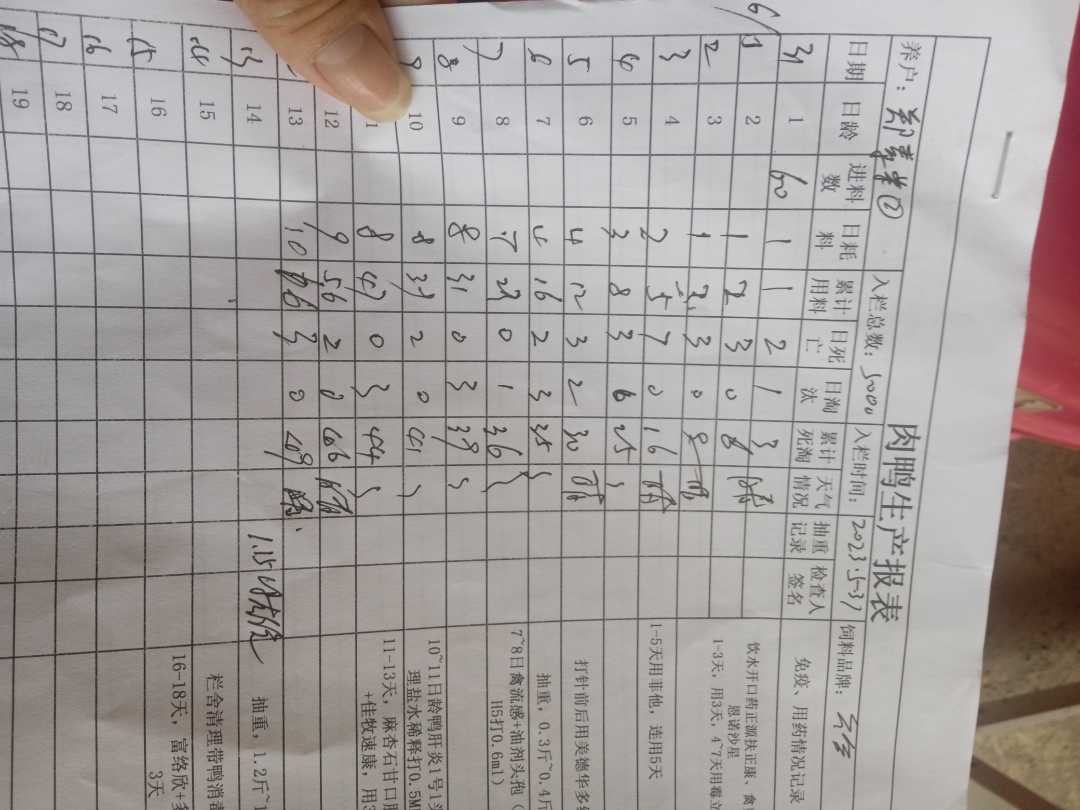 肉鸭生产报表
养户: 郑 ② 入栏总数: 5000 入栏时间: 2023.5-31 饲料品牌:
日期 日龄 进料数 日耗料 累计用料 日死亡 日淘汰 累计死淘 天气情况 抽重记录 检查人签名 免疫、用药情况记录
31 1 60 1 1 2 1 3
6/1 2 1 2 3 0 饮水开口药正源扶正康、禽
恩诺沙星
2 3 1 3 3 0 9 1-3天,用3天,4~7天用毒立
3 4 2 5 7 0 16 1-5天用菲他,连用5天
4 5 3 8 3 6 25
5 6 4 12 3 2 30 打针前后用美德华多
6 7 4 16 2 3 35 抽重,0.3斤~0.4斤
7 8 7 23 0 1 36 7~8日禽流感+油剂头孢(
H5打0.6ml)
8 9 8 31 0 3 39
9 10 8 39 2 0 41 10~11日龄鸭肝炎1号1头
理盐水稀释打0.5M
1 8 47 0 3 44 11-13天,麻杏石甘口服
+佳牧速康,用3
12 9 56 2 0 46
13 10 66 3 0 49
13 14 1.15 抽重,1.2斤~1
14 15 栏舍清理带鸭消毒
15 16 16-18天,富络欣+多
3天
16 17
17 18
18 19